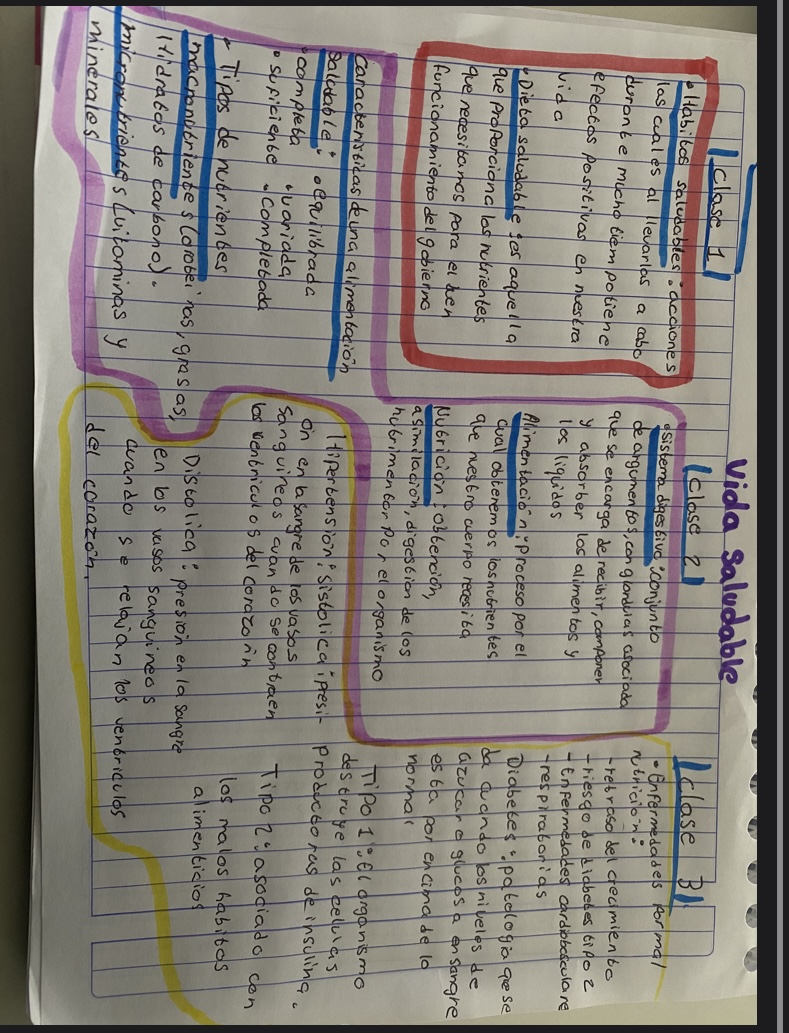 Vida saludable
Clase 1
• Habitos saludables: acciones
las cuales al llevarlas a cabo
durante mucho tiempo tiene
efectos positivos en nuestra
vida
• Dieta saludable: es aquella
que proporciona los nutrientes
que necesitamos para el bien
funcionamiento del gobierno
Caracteristicas de una alimentación
saludable: • equilibrada
• completa • variada
• suficiente • completada
• Tipos de nutrientes
macronutrientes (proteinas, grasas,
(Hidratos de carbono).
micronutrientes (vitaminas y
minerales
Clase 2
• Sistema digestivo: conjunto
de argumentos, con glandulas asociada
que se encarga de recibir, componer
y absorber los alimentos y
los liquidos
Alimentación: Proceso por el
cual obtenemos los nutrientes
que nuestro cuerpo necesita
Nutrición: obtención,
asimilación, digestion de los
nutrimentor por el organismo
Hipertension: sistolica: presi-
on en la sangre de los vasos
sanguineos cuando se contraen
los ventriculos del corazoñn
Distolica: presion en la sangre
en los vasos sanguineos
cuando se relajan los ventriculos
del corazón.
Clase 3
• Enfermedades por mal
nutrición:
- retraso del crecimiento
- riesgo de diabetes tipo 2
- Enfermedades cardiobasculare
- respiratorias
Diabetes: patologia que se
da cuando los niveles de
azucar o glucosa en sangre
esta por encima de lo
normal
Tipo 1: El organismo
destruye las celulas
productoras de insulina.
Tipo 2: asociado con
los malos habitos
alimenticios